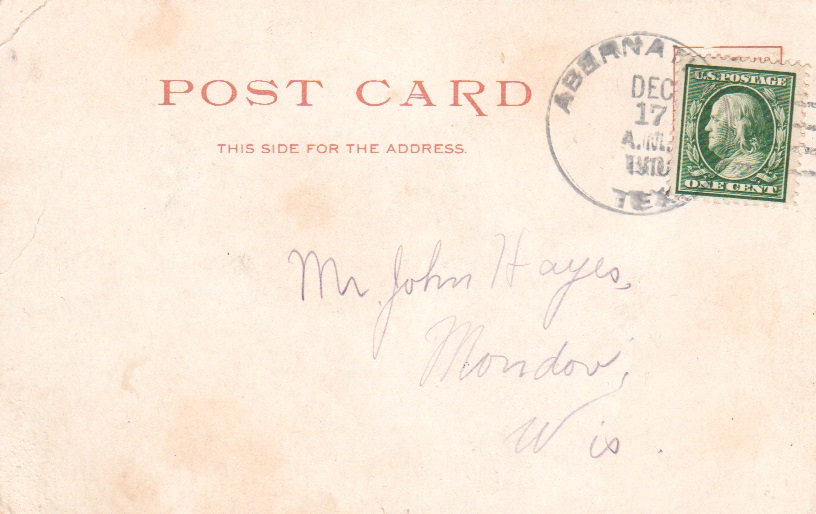 POST CARD
THIS SIDE FOR THE ADDRESS.
ABERNA
DEC
17
A.M.
1910
TEX
U.S. POSTAGE
ONE CENT
Mr. John Hayes,
Mondovi,
Wis.